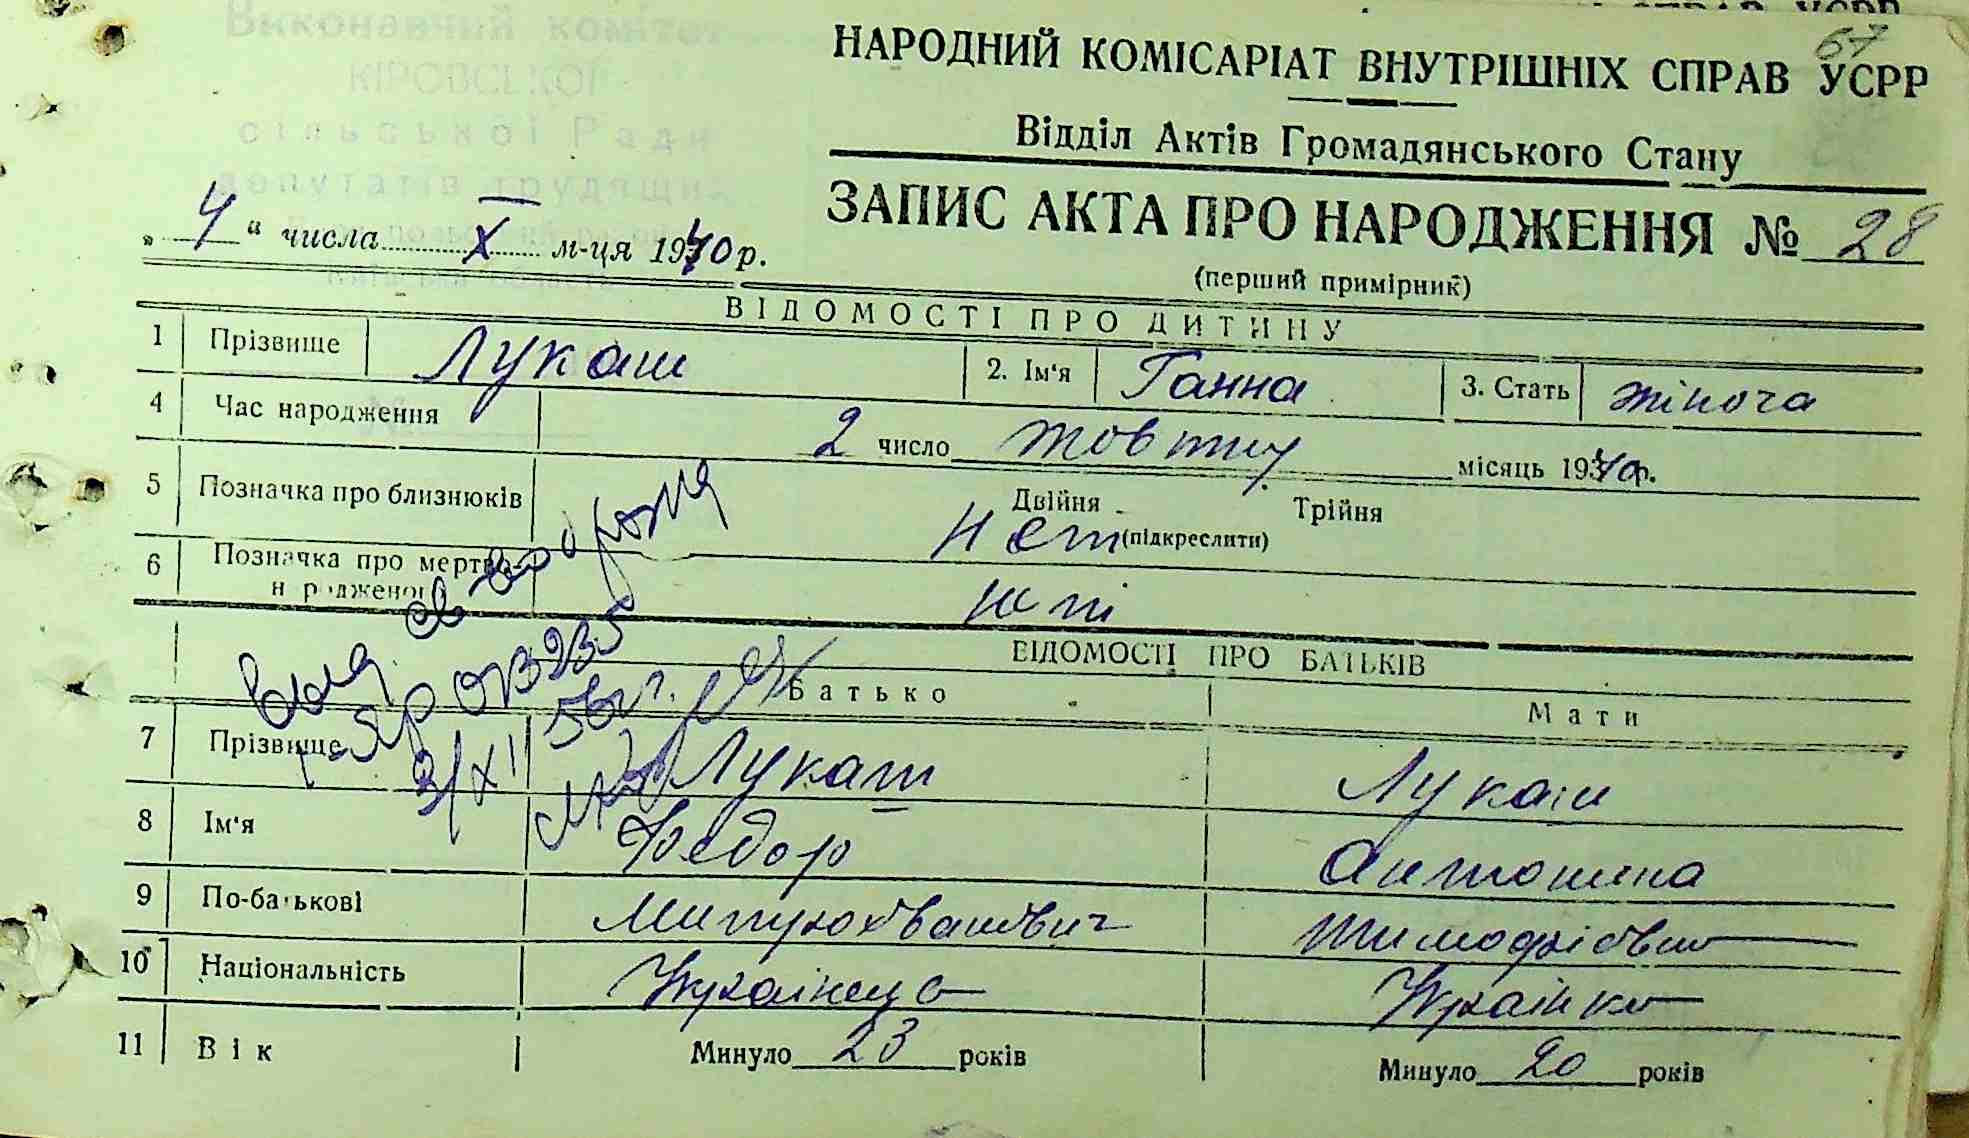 67
НАРОДНИЙ КОМІСАРІАТ ВНУТРІШНІХ СПРАВ УСРР
Відділ Актів Громадянського Стану
ЗАПИС АКТА ПРО НАРОДЖЕННЯ № 28
(перший примірник)
„ 4 “ числа X м-ця 1940 р.
ВІДОМОСТІ ПРО ДИТИНУ
1 Прізвище Лукаш 2. Ім'я Ганна 3. Стать жіноча
4 Час народження 2 число жовтну місяць 1940р.
5 Позначка про близнюків Двійня Трійня
нет (підкреслити)
6 Позначка про мертво-
народженого
ні
ВІДОМОСТІ ПРО БАТЬКІВ
Батько Мати
7 Прізвище Лукаш Лукаш
8 Ім'я Федор Антонина
9 По-батькові
10 Національність Українець Українка
11 Вік Минуло 23 років Минуло 20 років
Виконавчий комітет
КІРОВСЬКОЇ
сільської Ради
депутатів трудящих